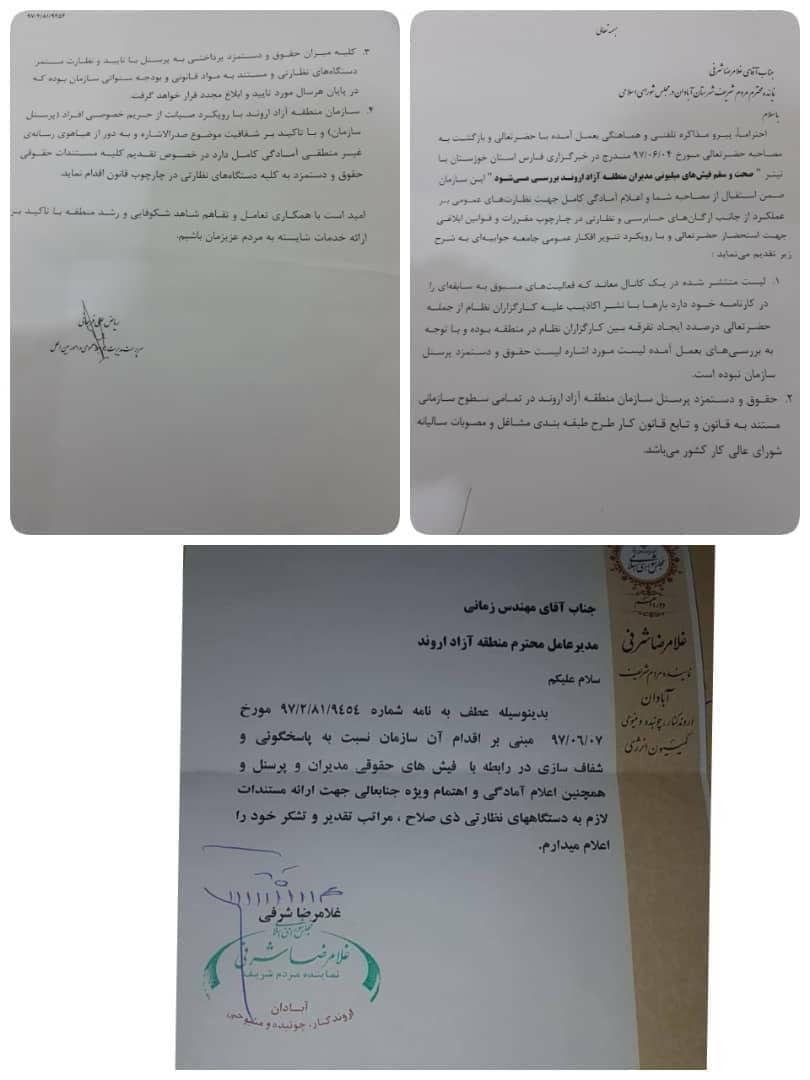 بسمه تعالی
جناب آقای غلامرضا شرفی
نماینده محترم مردم شریف شهرستان آبادان در مجلس شورای اسلامی
با سلام
احتراماً، پیرو مذاکره تلفنی و هماهنگی بعمل آمده با حضرتعالی و بازگشت به
مصاحبه حضرتعالی مورخ ۹۷/۰۶/۰۴ مندرج در خبرگزاری فارس استان خوزستان با
تیتر " صحت و سقم فیش‌های میلیونی مدیران منطقه آزاد اروند بررسی می‌شود " این سازمان
ضمن استقبال از مصاحبه شما و اعلام آمادگی کامل جهت نظارت‌های عمومی بر
عملکرد از جانب ارگان‌های حسابرسی و نظارتی در چارچوب مقررات و قوانین ابلاغی
جهت استحضار حضرتعالی و با رویکرد تنویر افکار عمومی جامعه جوابیه‌ای به شرح
زیر تقدیم می‌نماید :
۱. لیست منتشر شده در یک کانال معاند که فعالیت‌های مسبوق به سابقه‌ای را
در کارنامه خود دارد بارها با نشر اکاذیب علیه کارگزاران نظام از جمله
حضرتعالی درصدد ایجاد تفرقه بین کارگزاران نظام در منطقه بوده و با توجه
به بررسی‌های بعمل آمده لیست مورد اشاره لیست حقوق و دستمزد پرسنل
سازمان نبوده است.
۲. حقوق و دستمزد پرسنل سازمان منطقه آزاد اروند در تمامی سطوح سازمانی
مستند به قانون و تابع قانون کار طرح طبقه بندی مشاغل و مصوبات سالیانه
شورای عالی کار کشور می‌باشد.
۹۷/۲/۸۱/۹۴۵۴
۳. کلیه میزان حقوق و دستمزد پرداختی به پرسنل با تایید و نظارت مستمر
دستگاه‌های نظارتی و مستند به مواد قانونی و بودجه سنواتی سازمان بوده که
در پایان هرسال مورد تایید و ابلاغ مجدد قرار خواهد گرفت.
۴. سازمان منطقه آزاد اروند با رویکرد صیانت از حریم خصوصی افراد (پرسنل
سازمان) و با تاکید بر شفافیت موضوع صدرالاشاره و به دور از هیاهوی رسانه‌ی
غیر منطقی آمادگی کامل دارد در خصوص تقدیم کلیه مستندات حقوقی
حقوق و دستمزد به کلیه دستگاه‌های نظارتی در چارچوب قانون اقدام نماید.
امید است با همکاری تعامل و تفاهم شاهد شکوفایی و رشد منطقه با تاکید بر
ارائه خدمات شایسته به مردم عزیزمان باشیم.
سرپرست مدیریت روابط عمومی و امور بین الملل
غلامرضا شرفی
نماینده مردم شریف
آبادان
اروندکنار، چوئبده و مینوحی
کمیسیون انرژی
جناب آقای مهندس زمانی
مدیرعامل محترم منطقه آزاد اروند
سلام علیکم
بدینوسیله عطف به نامه شماره ۹۷/۲/۸۱/۹۴۵۴ مورخ
۹۷/۰۶/۰۷ مبنی بر اقدام آن سازمان نسبت به پاسخگوئی و
شفاف سازی در رابطه با فیش های حقوقی مدیران و پرسنل و
همچنین اعلام آمادگی و اهتمام ویژه جنابعالی جهت ارائه مستندات
لازم به دستگاههای نظارتی ذی صلاح ، مراتب تقدیر و تشکر خود را
اعلام میدارم.
غلامرضا شرفی
غلامرضا شرفی
نماینده مردم شریف
آبادان
اروندکنار، چوئبده و مینوحی